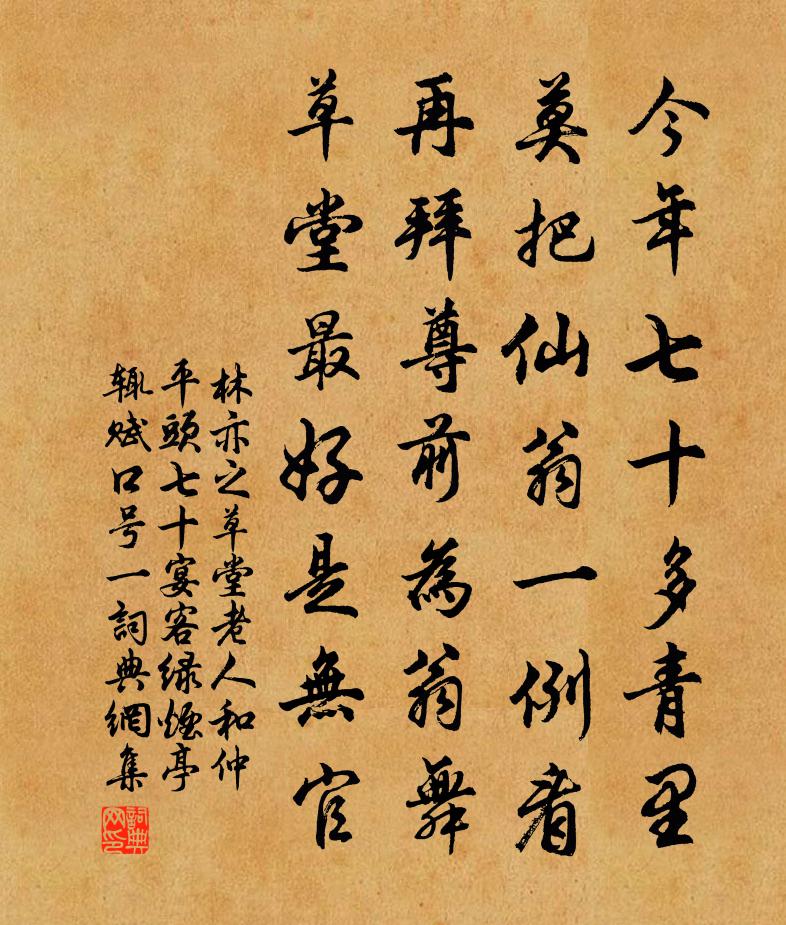 今年七十多青里
莫把仙翁一例看
再拜尊前為翁舞
草堂最好是無官
林亦之草堂老人和仲
平頭七十宴客绿烟亭
辄赋口号一詞典網集
詞典网印